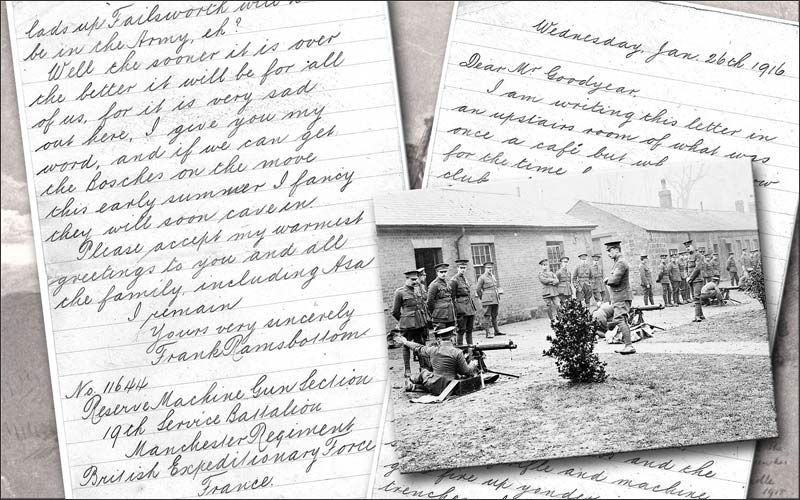 lads up Failsworth will n
be in the Army, eh?
Well the sooner it is over
the better it will be for all
of us, for it is very sad
out here, I give you my
word, and if we can get
the Bosches on the move
this early summer I fancy
they will soon cave in.
Please accept my warmest
greetings to you and all
the family, including Asa
I remain
Yours very sincerely
Frank Ramsbottom
No. 11644
Reserve Machine Gun Section
19th Service Battalion
Manchester Regiment
British Expeditionary Force
France.
Wednesday, Jan. 26th 1916
Dear Mr Goodyear,
I am writing this letter in
an upstairs room of what was
once a café but
for the time
club
and the
and machine
fire up yonder
trenches